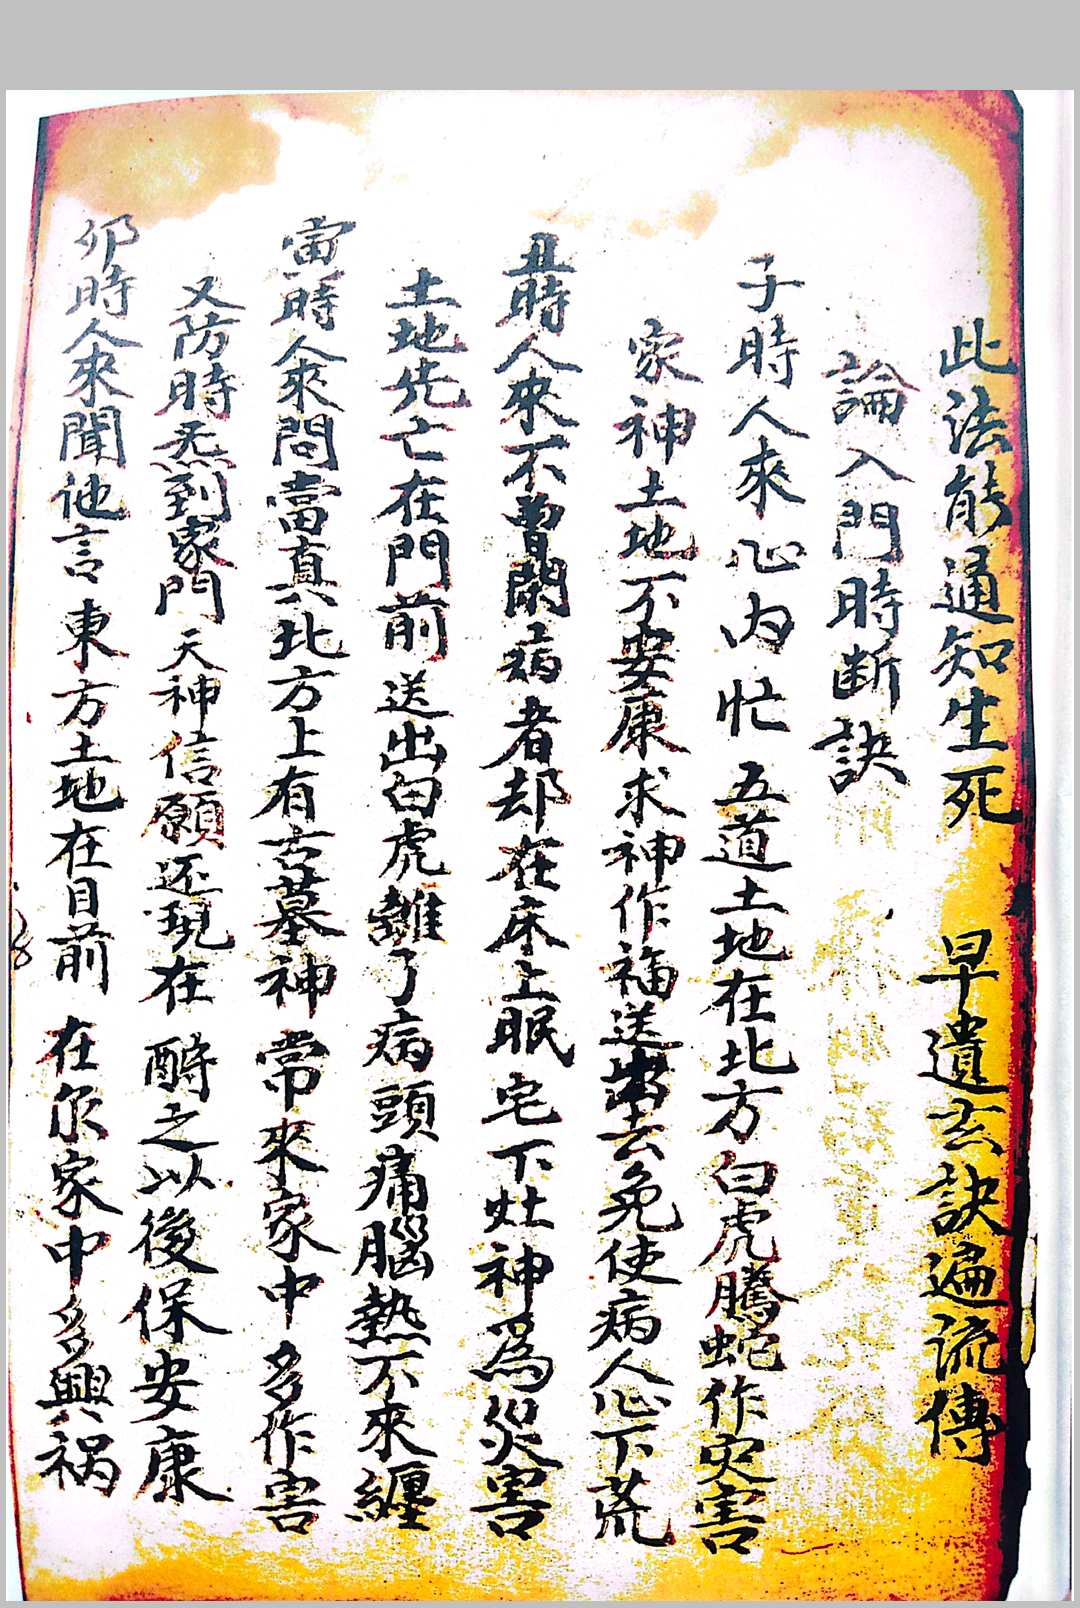 此法能通知生死 早遺玄訣遍流傳
論入門時断訣
子時人來心内忙 五道土地在北方 白虎騰蛇作灾害
家神土地不安康 求神作福送出去 免使病人心下荒
丑時人來不曽閑 病者却在床上眠 宅下灶神為災害
土地先亡在門前 送出白虎離了病 頭痛腦熱不來纏
寅時人來問當真 北方上有古墓神 常來家中多作害
又防時炁到家門 天神信願还現在 酧之以後保安康
卯時人來聞他言 東方土地在目前 在你家中多興祸